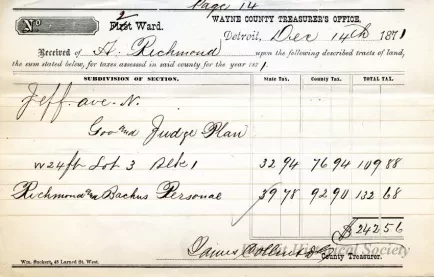 Page 14
No 2 First Ward. WAYNE COUNTY TREASURER'S OFFICE,
Detroit, Dec 14th 1871
Received of A. Richmond upon the following described tracts of land,
the sum stated below, for taxes assessed in said county for the year 1871.
SUBDIVISION OF SECTION. State Tax. County Tax. TOTAL TAX.
Jeff. ave. N.
Gov and Judge Plan
W 24 ft Lot 3 Blk 1 32 94 76 94 109 88
Richmond & Backus Personal 39 78 92 90 132 68
$242.56
James Collins
County Treasurer.
Wm. Suckert, 42 Larned St. West.
Historical Society